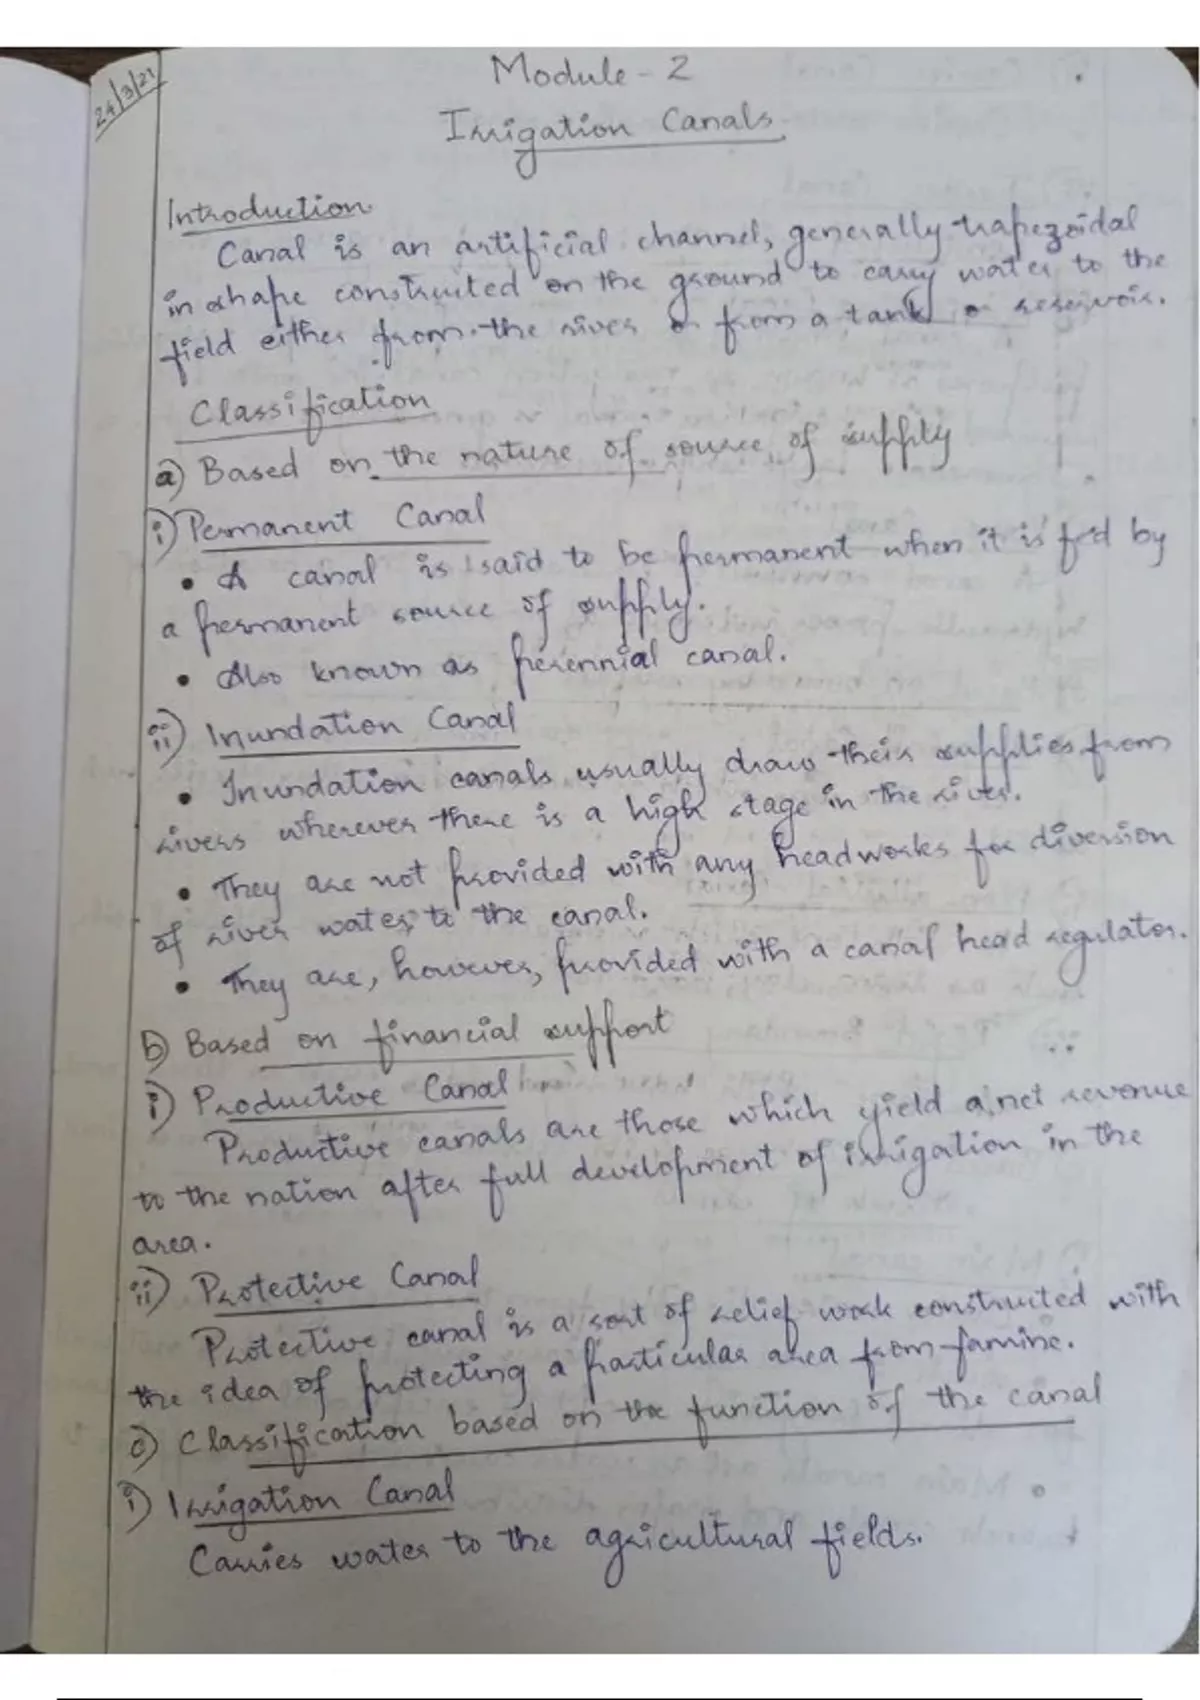 24/3/21
Module - 2
Irrigation Canals
Introduction
Canal is an artificial channel, generally trapezoidal
in shape constructed on the ground to carry water to the
field either from the river or from a tank or reservoir.
Classification
a) Based on the nature of source of supply
i) Permanent Canal
• A canal is said to be permanent when it is fed by
a permanent source of supply.
• Also known as perennial canal.
ii) Inundation Canal
• Inundation canals usually draw their supplies from
rivers wherever there is a high stage in the river.
• They are not provided with any headworks for diversion
of river water to the canal.
• They are, however, provided with a canal head regulator.
b) Based on financial support
i) Productive Canal
Productive canals are those which yield a net revenue
to the nation after full development of irrigation in the
area.
ii) Protective Canal
Protective canal is a sort of relief work constructed with
the idea of protecting a particular area from famine.
c) Classification based on the function of the canal
i) Irrigation Canal
Carries water to the agricultural fields.